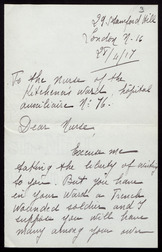 3
29, Stamford Hill
London N. 16
25/4/17
To the Nurse of the
Kitchener's Ward, hôpital
auxiliaire No: 76.
Dear Nurse
Excuse me
taking the liberty of writing
to you. But you have
in your Ward a French
wounded soldier and I
suppose you will have
many among your own